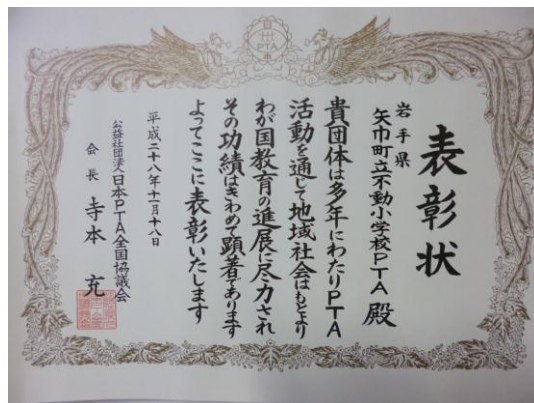 表彰状
岩手県
矢巾町立不動小学校PTA殿
貴団体は多年にわたりPTA
活動を通じて地域社会はもとより
わが国教育の進展に尽力され
その功績はきわめて顕著であります
よってここに表彰いたします
平成二十八年十一月十八日
公益社団法人日本PTA全国協議会
会長 寺本 充
PTA